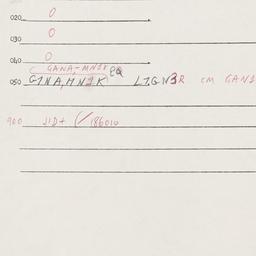 020 0
030 0
040 0
GANA,-MN1K
050 G1NA,MN1K LT.GN3R CM GAN1
900 J1D+ (/186010